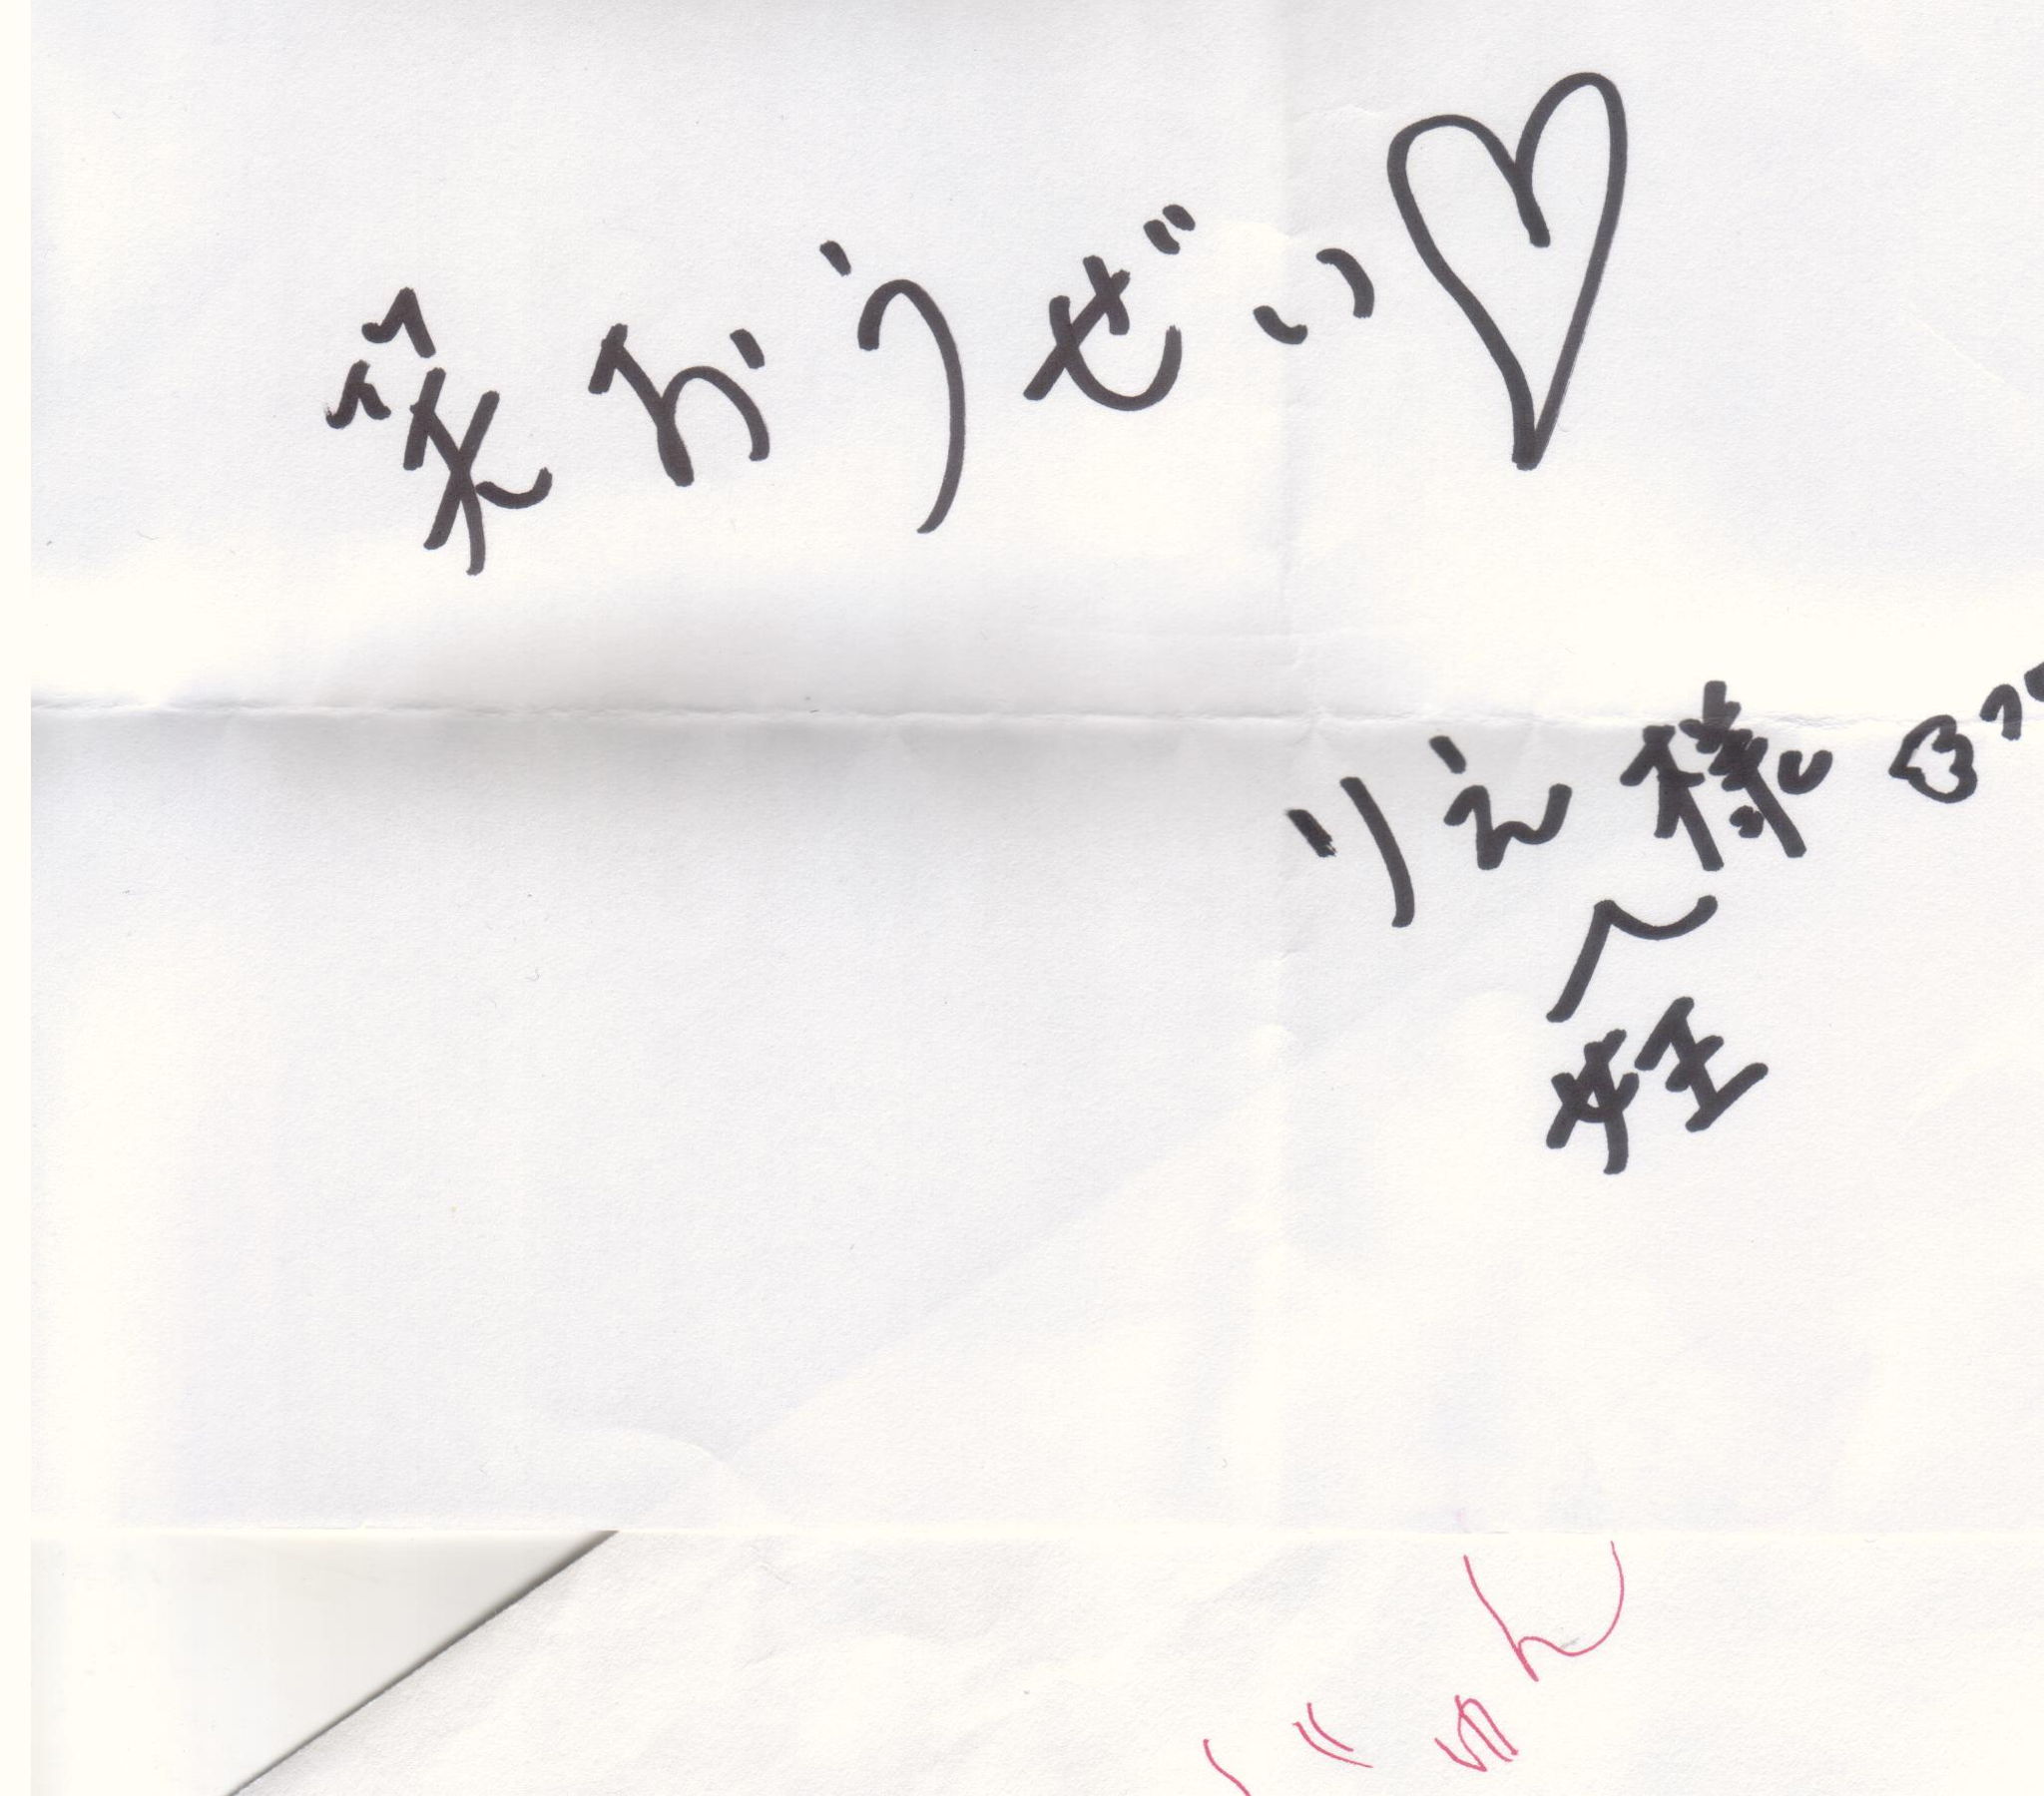 笑おうぜい♡
りえ様
へ
じゅん